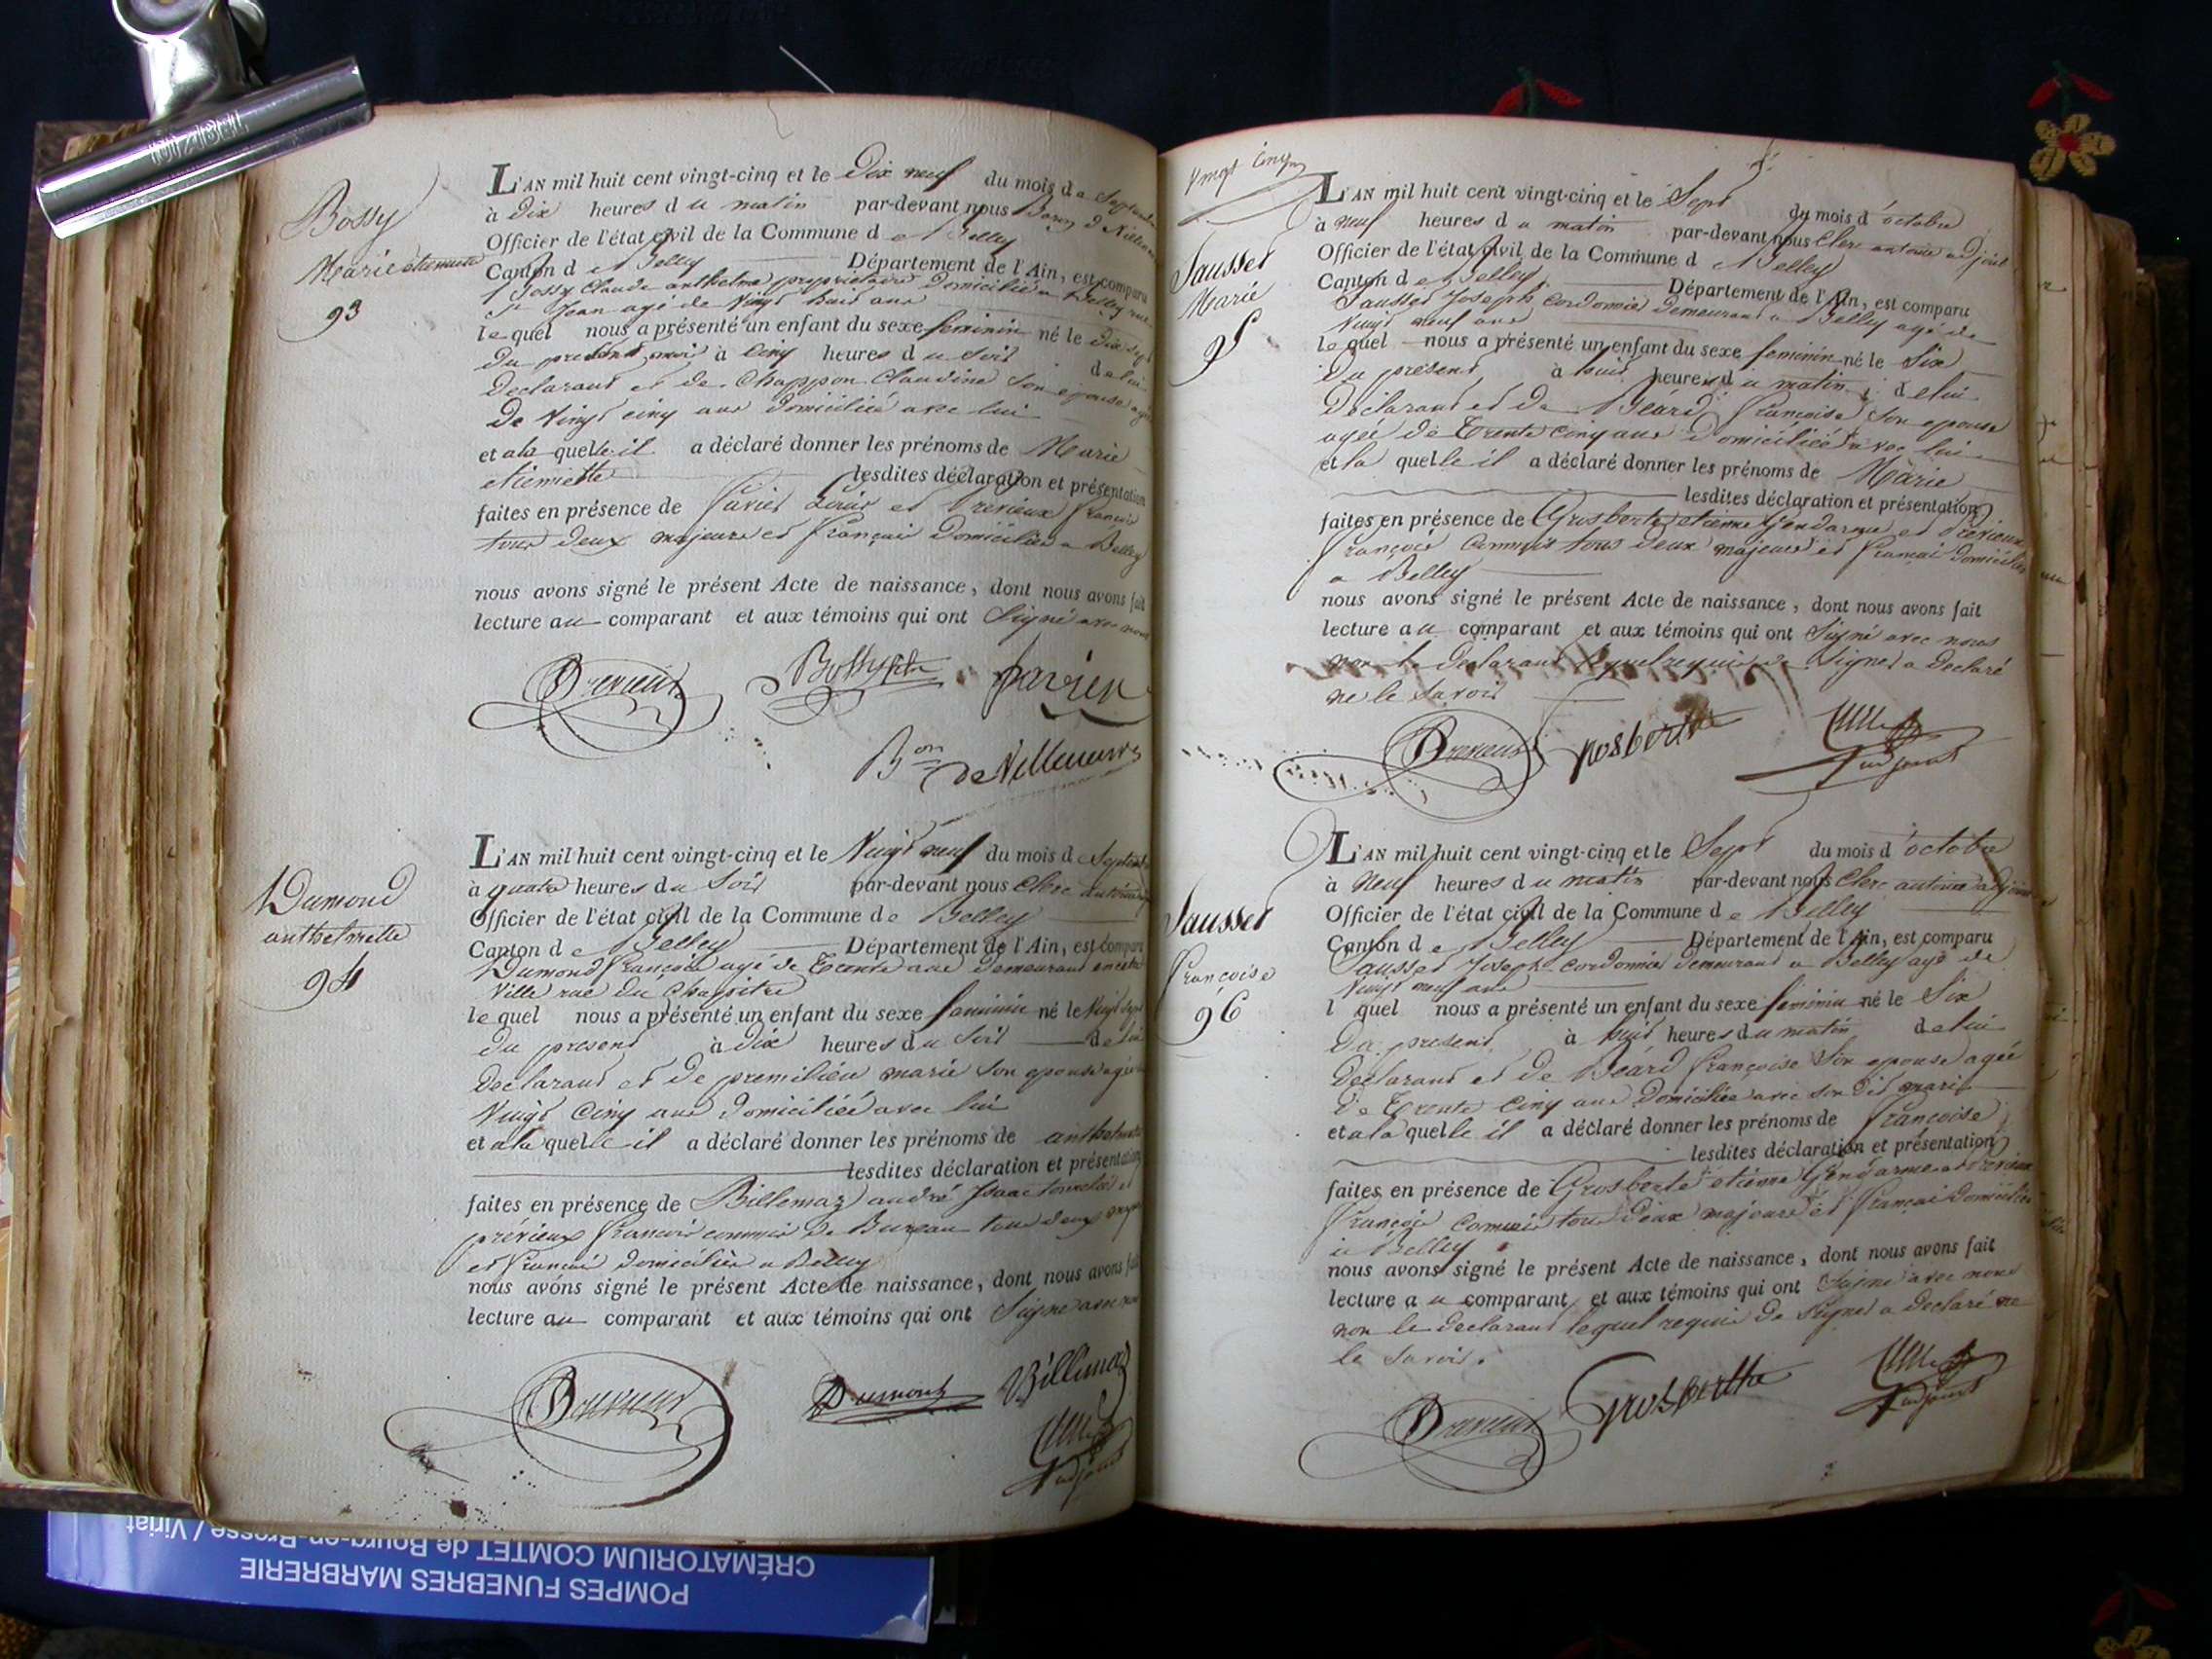 Bossy
Marie etiennette
93
L'AN mil huit cent vingt-cinq et le Dix neuf du mois de Septembre
à Dix heures du matin par-devant nous Baron de Villeneuve
Officier de l'état civil de la Commune de Belley
Canton de Belley Département de l'Ain, est comparu
Bossy Claude anthelme propriétaire domicilié a Belley rue
St Jean agé de Vingt huit ans
le quel nous a présenté un enfant du sexe feminin né le Dix sept
du present mois à Cinq heures du Soir de lui
Declarant et de Chappon Claudine Son epouse agée
De Vingt cinq ans domiciliée avec lui
et a la quelle il a déclaré donner les prénoms de Marie
etiennette lesdites déclaration et présentation
faites en présence de Savier Louis et Prévieux François
tous deux majeurs et français Domiciliés a Belley
nous avons signé le présent Acte de naissance, dont nous avons fait
lecture au comparant et aux témoins qui ont Signé avec nous
Prévieux Bossy Savier
Bon de Villeneuve
Dumond
anthelmette
94
L'AN mil huit cent vingt-cinq et le Vingt neuf du mois de Septembre
à quatre heures du Soir par-devant nous Clerc antoine
Officier de l'état civil de la Commune de Belley
Canton de Belley Département de l'Ain, est comparu
Dumond François agé de Trente ans demeurant en cette
Ville rue du Chapitre
le quel nous a présenté un enfant du sexe feminin né le Vingt sept
du present à dix heures du Soir de lui
Declarant et de premilieu marie Son epouse agée de
Vingt Cinq ans domiciliée avec lui
et a la quelle il a déclaré donner les prénoms de anthelmette
lesdites déclaration et présentation
faites en présence de Billemaz andré Isaac et
prévieux francois commis de Bureau tous deux majeurs
et francais domiciliés a Belley
nous avons signé le présent Acte de naissance, dont nous avons fait
lecture au comparant et aux témoins qui ont Signé avec nous
Prévieux Dumond Billemaz
Clerc
adjoint
Vingt Cinq
Sausset
Marie
95
L'AN mil huit cent vingt-cinq et le Sept du mois d'octobre
à neuf heures du matin par-devant nous Clerc antoine adjoint
Officier de l'état civil de la Commune de Belley
Canton de Belley Département de l'Ain, est comparu
Sausset Joseph Cordonnier demeurant a Belley agé de
Vingt neuf ans
le quel nous a présenté un enfant du sexe feminin né le Six
Du présent à huit heures du matin de lui
Déclarant et de Béard françoise Son epouse
agée de Trente Cinq ans Domiciliée avec lui
et la quelle il a déclaré donner les prénoms de Marie
lesdites déclaration et présentation
faites en présence de Grosberte etienne Gendarme et Prévieux
François Commis tous deux majeurs et francai domiciliés
a Belley
nous avons signé le présent Acte de naissance, dont nous avons fait
lecture au comparant et aux témoins qui ont Signé avec nous
non le declarant lequel requis de Signer a declaré
ne le Savoir
Prévieux Grosberte Clerc
adjoint
Sausset
françoise
96
L'AN mil huit cent vingt-cinq et le Sept du mois d'octobre
à Neuf heures du matin par-devant nous Clerc antoine adjoint
Officier de l'état civil de la Commune de Belley
Canton de Belley Département de l'Ain, est comparu
Sausset Joseph Cordonnier demeurant a Belley agé de
Vingt neuf ans
l quel nous a présenté un enfant du sexe feminin né le Six
Du present à huit heures du matin de lui
Declarant et de Béard françoise Son epouse agée
de Trente Cinq ans Domiciliée avec son dit mari
et a la quelle il a déclaré donner les prénoms de françoise
lesdites déclaration et présentation
faites en présence de Grosberte etienne Gendarme et Prévieux
François Commis tous deux majeurs et francai domiciliés
a Belley
nous avons signé le présent Acte de naissance, dont nous avons fait
lecture au comparant et aux témoins qui ont Signé avec nous
non le declarant lequel requis de Signer a declaré ne
le Savoir.
Prévieux Grosberte Clerc
adjoint
POMPES FUNEBRES MARBRERIE
CRÉMATORIUM COMTET de Bourg-en-Bresse / Viriat